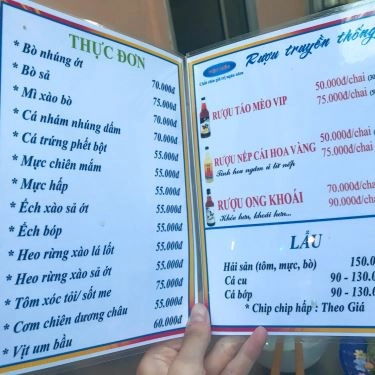 THỰC ĐƠN
* Bò nhúng ớt
* Bò sả 70.000đ
* Mì xào bò 70.000đ
* Cá nhám nhúng dấm 75.000đ
* Cá trứng phết bột 70.000đ
* Mực chiên mắm 55.000đ
* Mực hấp 55.000đ
* Ếch xào sả ớt 55.000đ
* Ếch bóp 55.000đ
* Heo rừng xào lá lốt 55.000đ
* Heo rừng xào sả ớt 55.000đ
* Tôm xóc tỏi/ sốt me 75.000đ
* Cơm chiên dương châu 55.000đ
* Vịt um bầu 60.000đ
Rượu truyền thống
50.000đ/chai
RƯỢU TÁO MÈO VIP 75.000đ/chai
50.000đ/chai
RƯỢU NẾP CÁI HOA VÀNG 75.000đ/chai
Tinh hoa ngâm ủ từ nếp
70.000đ/chai
RƯỢU ONG KHOÁI 90.000đ/chai
Khỏe hơn, khoái hơn...
LẨU
Hải sản (tôm, mực, bò) 150.0
Cá cu 90 - 130.0
Cá bớp 90 - 130.0
* Chip chip hấp : Theo Giá